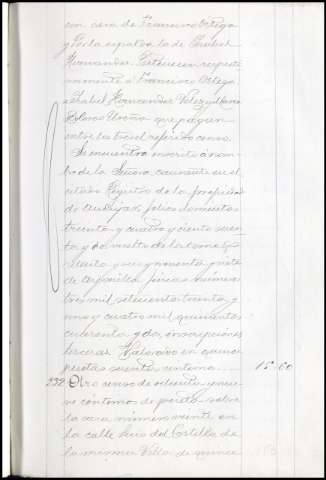 con casa de Francisco Ortega
y por la espalda la de Isabel
Hernandez. Pertenecen respecti
vamente a Francisco Ortega
e Isabel Hernandez Velez y María
Dolores Ureña que pagan
entre los tres el referido censo.
Se encuentra inscrito á nom
bre de la Señora causante en el
citado Registro de la propiedad
de Andujar, folios doscientos
treinta y cuatro y ciento seten
ta y dos vuelto de los tomos
ochenta y seis y noventa y siete
de fincas números
tres mil setecientos treinta y
uno y cuatro mil quinientos
cuarenta y dos, inscripciones
terceras. Valorado en quince
pesetas sesenta centimos 15 60
232 Otro censo de ochenta y nue
ve céntimos de peseta sobre
la casa número veinte en
la calle del Castillo de
la misma Villa de